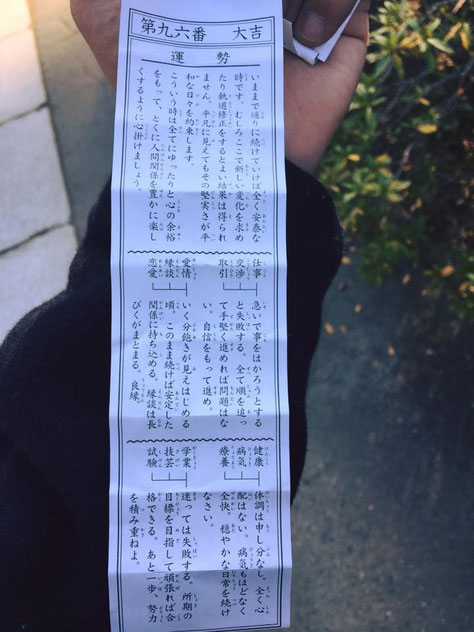 第九六番　大吉
運勢
いままで通りに続けていけば全く安泰な
時です。むしろここで新しい変化を求め
たり軌道修正をするとよい結果は得られ
ません。平凡に見えてもその堅実さが平
和な日々を約束します。
こういう時は全てにゆったりと心の余裕
をもって、とくに人間関係を豊かに楽し
くするように心掛けましょう。
仕事
交渉
取引
急いで事をはかろうとする
と失敗する。全て順を追っ
て手堅く進めれば問題はな
い。自信をもって進め。
愛情
縁談
恋愛
いく分飽きが見えはじめる
頃。このまま続けば安定した
関係に持ち込める。縁談は長
びくがまとまる。良縁。
健康
病気
療養
体調は申し分なし。全く心
配はない。病気もほどなく
全快。穏やかな日常を続け
なさい。
学業
技芸
試験
迷っては失敗する。所期の
目標を目指して頑張れば合
格できる。あと一歩、努力
を積み重ねよ。